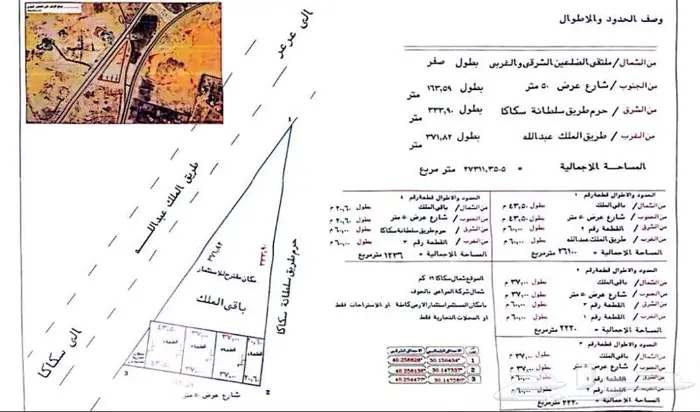 وصف الحدود والاطوال
من الشمال / ملتقى الضلعين الشرقى والغربى بطول صفر
من الجنوب / شارع عرض ٥٠ متر بطول ١٦٣,٥٩ متر
من الشرق / حرم طريق سلطانة سكاكا بطول ٣٣٣,٩٠ متر
من الغرب / طريق الملك عبدالله بطول ٣٧١,٨٢ متر
المساحة الاجمالية = ٢٧٣١١,٣٥٠٥ متر مربع
الحدود والاطوال قطعة رقم ١
من الشمال / باقى الملك بطول ٤٣,٥٠ م
من الجنوب / شارع عرض ٥٠ متر بطول ٤٣,٥٠ م
من الشرق / القطعة رقم ٢ بطول ٦٠,٠٠ م
من الغرب / طريق الملك عبدالله بطول ٦٠,٠٠ م
المساحة الاجمالية = ٢٦١٠٠ مترمربع
الحدود والاطوال قطعة رقم ٤
من الشمال / باقى الملك بطول ٢٠,٦٠ م
من الجنوب / شارع عرض ٥٠ متر بطول ٢٠,٦٠ م
من الشرق / حرم طريق سلطانة سكاكا بطول ٦٠,٠٠ م
من الغرب / القطعة رقم ٣ بطول ٦٠,٠٠ م
المساحة الاجمالية = ١٢٣٦ مترمربع
الحدود والاطوال قطعة رقم ٢
من الشمال / باقى الملك بطول ٣٧,٠٠ م
من الجنوب / شارع عرض ٥٠ متر بطول ٣٧,٠٠ م
من الشرق / القطعة رقم ٣ بطول ٦٠,٠٠ م
من الغرب / القطعة رقم ١ بطول ٦٠,٠٠ م
المساحة الاجمالية = ٢٢٢٠ مترمربع
الموقع شمال سكاكا ١٦ كم
شمال شركة المراعى بالجوف
بامكان المستثمر استثمار الارض كاملة او الاستراحات فقط
او المحلات التجارية فقط
الحدود والاطوال قطعة رقم ٣
من الشمال / باقى الملك بطول ٣٧,٠٠ م
من الجنوب / شارع عرض ٥٠ متر بطول ٣٧,٠٠ م
من الشرق / القطعة رقم ٤ بطول ٦٠,٠٠ م
من الغرب / القطعة رقم ٢ بطول ٦٠,٠٠ م
المساحة الاجمالية = ٢٢٢٠ مترمربع
1
2
3
الى عرعر
طريق الملك عبدالله
الى سكاكا
1
٣٧١,٨٢
٣٣٣,٩٠
حرم طريق سلطانة سكاكا
مكان مقترح للاستثمار
باقى الملك
٤٣,٥٠ ٣٧,٠٠ ٣٧,٠٠ ٢٠,٦٠
3
شارع عرض ٥٠ متر
2